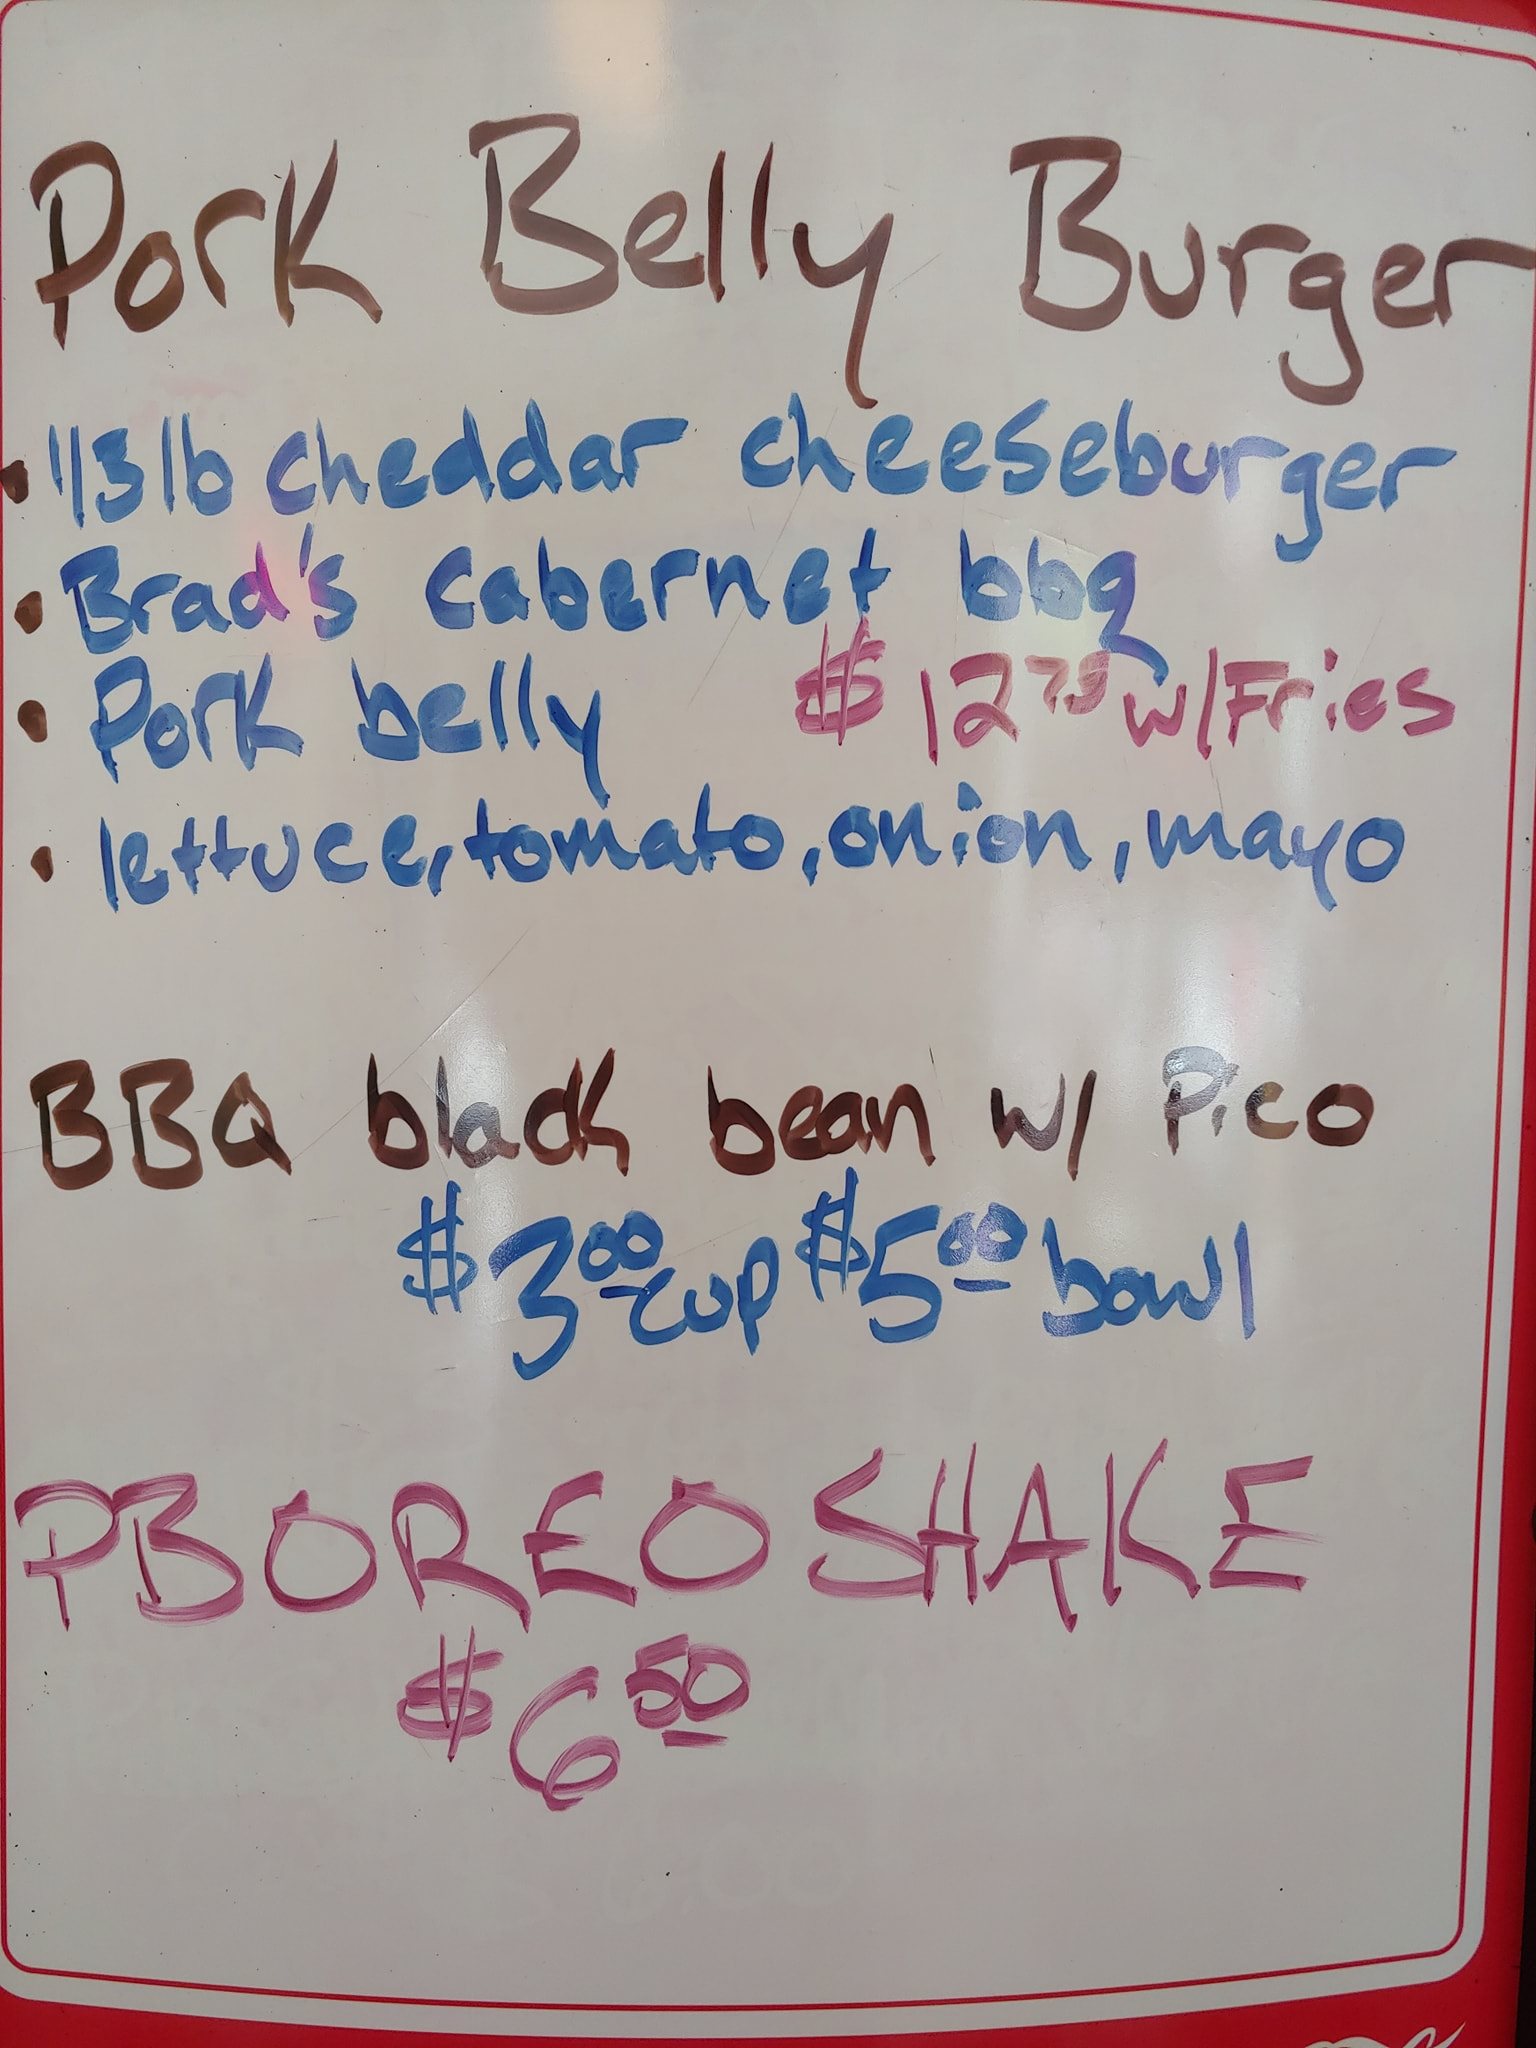 Pork Belly Burger
• 1/3 lb cheddar cheeseburger
• Brad's cabernet bbq
• Pork belly $12.75 w/Fries
• lettuce, tomato, onion, mayo
BBQ black bean w/ Pico
$3.00 cup $5.00 bowl
PB OREO SHAKE
$6.50